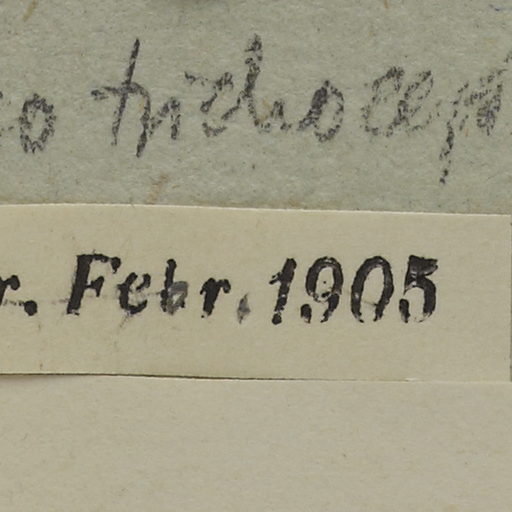 o trichocep
r. Febr. 1905